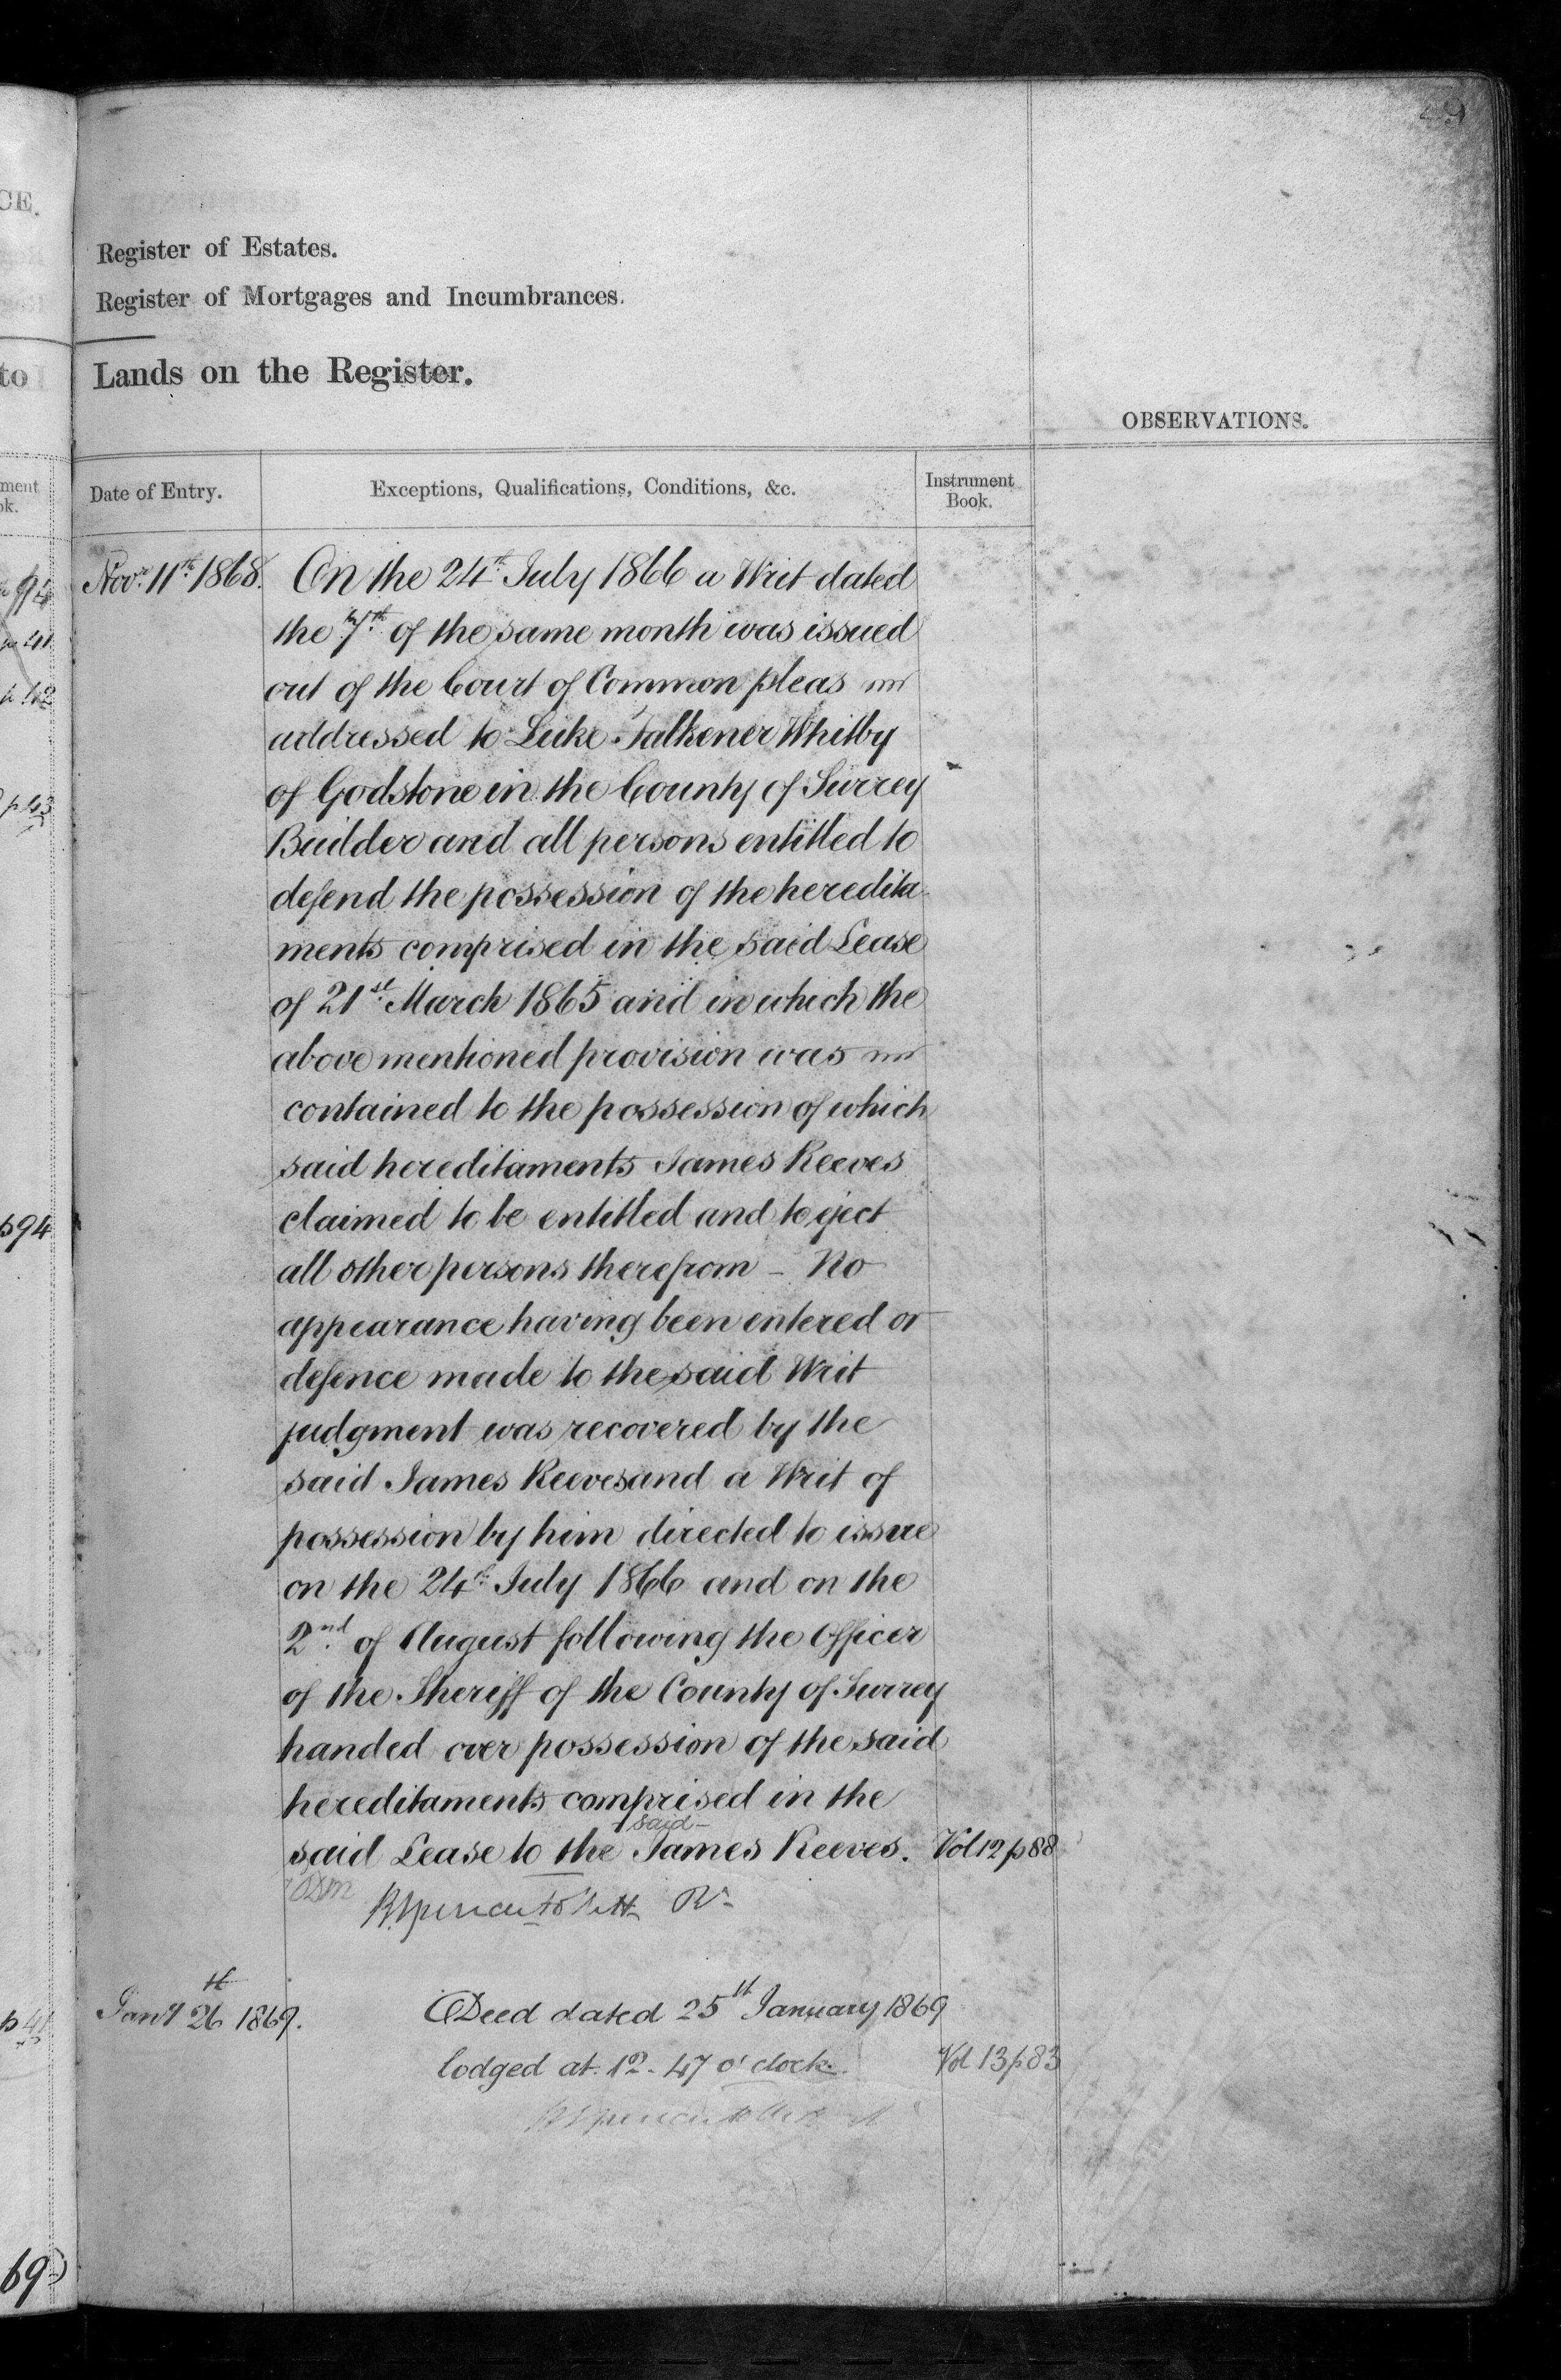 Register of Estates.
Register of Mortgages and Incumbrances.
Lands on the Register.
OBSERVATIONS.
Date of Entry.
Exceptions, Qualifications, Conditions, &c.
Instrument
Book.
Novr. 11th. 1868. On the 24th. July 1866 a Writ dated
the 7th. of the same month was issued
out of the Court of Common pleas
addressed to Luke Falkener Whitby
of Godstone in the County of Surrey
Builder and all persons entitled to
defend the possession of the heredita
ments comprised in the said Lease
of 21st. March 1865 and in which the
above mentioned provision was
contained to the possession of which
said hereditaments James Reeves
claimed to be entitled and to eject
all other persons therefrom – No
appearance having been entered or
defence made to the said Writ
judgment was recovered by the
said James Reeves and a Writ of
possession by him directed to issue
on the 24th. July 1866 and on the
2nd. of August following the Officer
of the Sheriff of the County of Surrey
handed over possession of the said
hereditaments comprised in the
said Lease to the said James Reeves. Vol 12 p 88
Jany 26th 1869. Deed dated 25th January 1869
lodged at 12. 47 o'clock. Vol 13 p 83
CE.
to
ment
ok.
p 41
p 42
p 43
p 94
p 41
69